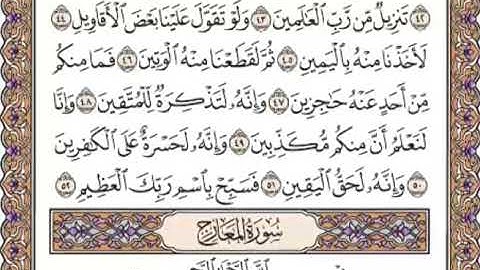 ٤٢ تَنزِيلٌ مِّن رَّبِّ ٱلْعَٰلَمِينَ ٤٣ وَلَوْ تَقَوَّلَ عَلَيْنَا بَعْضَ ٱلْأَقَاوِيلِ ٤٤
لَأَخَذْنَا مِنْهُ بِٱلْيَمِينِ ٤٥ ثُمَّ لَقَطَعْنَا مِنْهُ ٱلْوَتِينَ ٤٦ فَمَا مِنكُم
مِّنْ أَحَدٍ عَنْهُ حَٰجِزِينَ ٤٧ وَإِنَّهُۥ لَتَذْكِرَةٌ لِّلْمُتَّقِينَ ٤٨ وَإِنَّا
لَنَعْلَمُ أَنَّ مِنكُم مُّكَذِّبِينَ ٤٩ وَإِنَّهُۥ لَحَسْرَةٌ عَلَى ٱلْكَٰفِرِينَ
٥٠ وَإِنَّهُۥ لَحَقُّ ٱلْيَقِينِ ٥١ فَسَبِّحْ بِٱسْمِ رَبِّكَ ٱلْعَظِيمِ ٥٢
سُورَةُ المَعَارِجِ